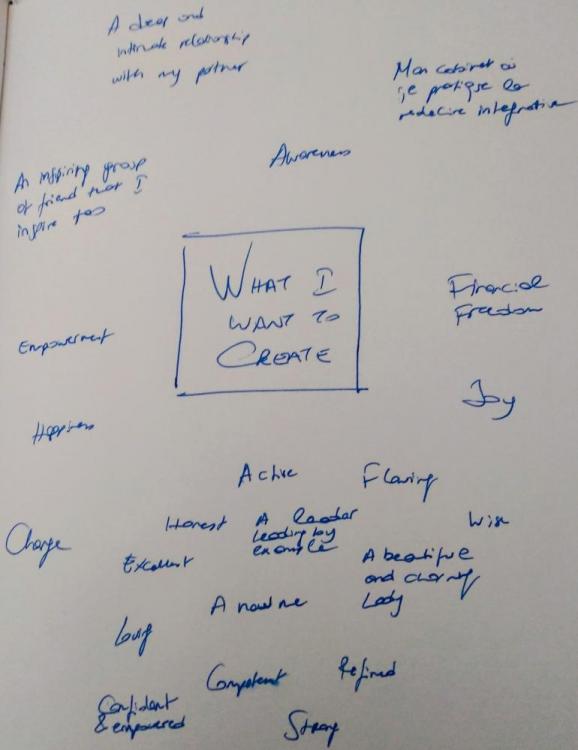 A deep and
intimate relationship
with my partner
Mon cabinet où
je pratique la
médecine integrative
Awareness
An inspiring group
of friend that I
inspire too
WHAT I
WANT TO
CREATE
Financial
Freedom
Empowerment
Joy
Happiness
Active
Flowing
Honest
A leader
leading by
example
Wise
Change
Excellent
A beautiful
and charming
Lady
A new me
Loving
Competent
Refined
Confident
& empowered
Strong